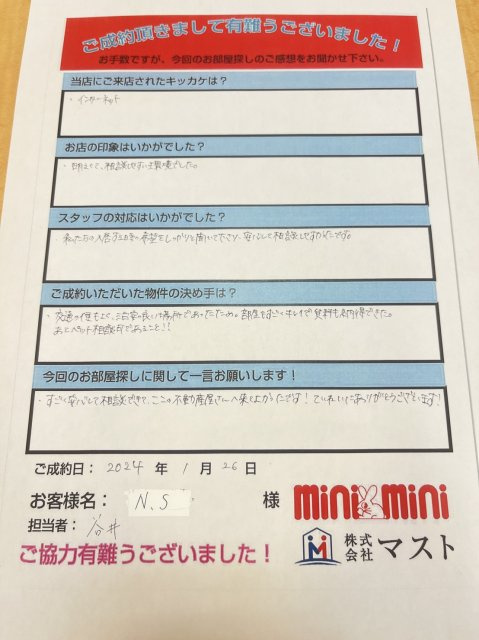 ご成約頂きまして有難うございました！
お手数ですが、今回のお部屋探しのご感想をお聞かせ下さい。
当店にご来店されたキッカケは？
・インターネット
お店の印象はいかがでした？
・明るくて、相談しやすい環境でした。
スタッフの対応はいかがでした？
・私たちの入居するときの希望をしっかりと聞いて下さり、安心して相談しやすかったです。
ご成約いただいた物件の決め手は？
・交通の便もよく、治安の良い場所であったため。部屋もすごくキレイで賃料も納得できた。
あとペット相談可であること！！
今回のお部屋探しに関して一言お願いします！
・すごく安心して相談できて、ここの不動産屋さんへ来てよかったです！ていねいにありがとうございます！
ご成約日： 2024 年 1 月 26 日
お客様名： N.S 様
mini mini
担当者：
株式会社 マスト
ご協力有難うございました！